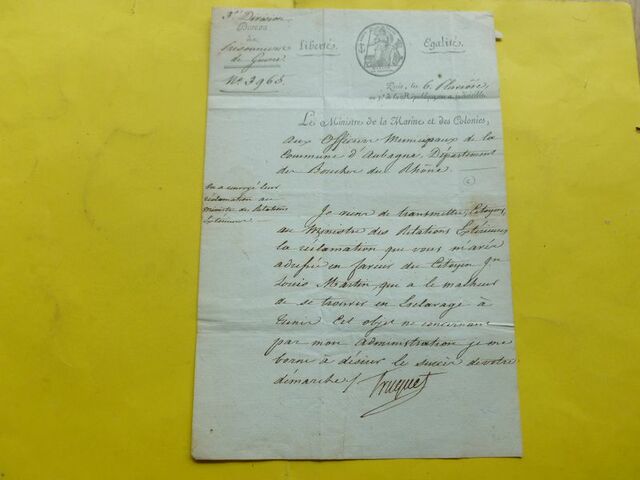 3e Division
Bureau
des
Prisonniers
de Guerre
No 3965.
Liberté.
Egalité.
Paris, le 6. Pluviôse,
an 5e de la République, une et indivisible.
Le Ministre de la Marine et des Colonies,
Aux Officiers Municipaux de la
Commune d'Aubagne, Département
des Bouches du Rhône.
On a envoyé leur
réclamation au
Ministre des Relations
Extérieures
Je viens de transmettre, Citoyens,
au Ministre des Relations Extérieures
la réclamation que vous m'avez
adressée en faveur du Citoyen
Louis Martin, qui a le malheur
de se trouver en Esclavage à
Tunis. Cet objet ne concernant
pas mon administration je me
borne à désirer le succès de votre
démarche.
Truguet